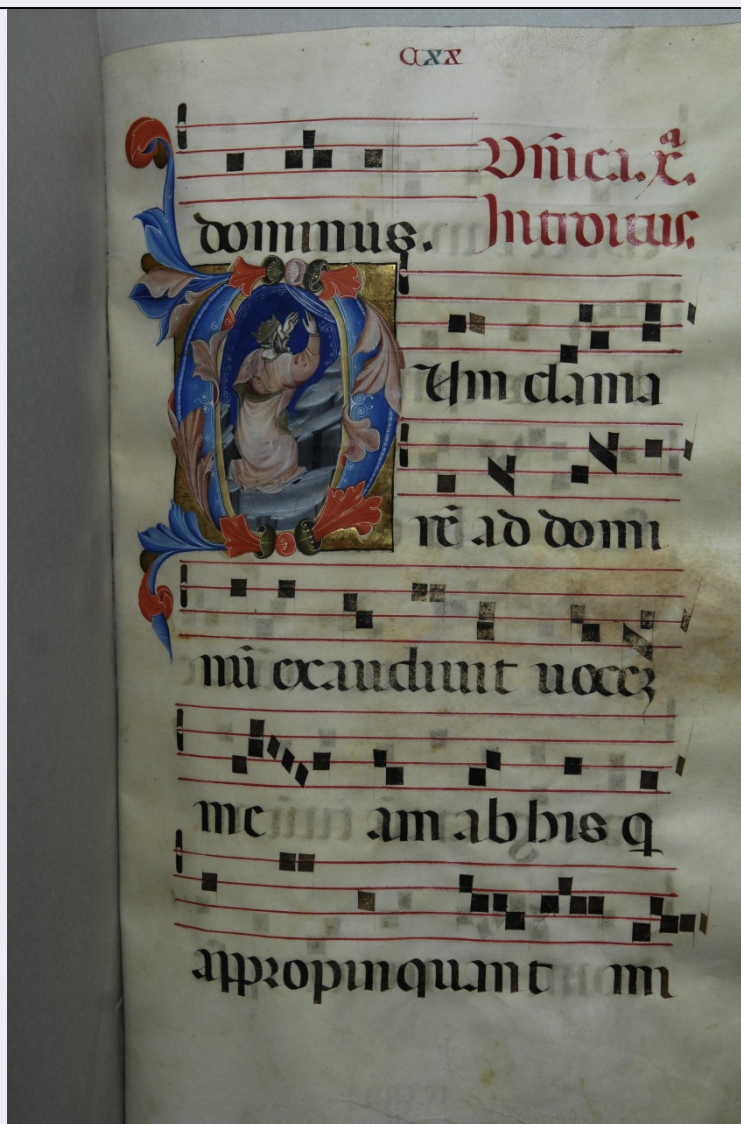 cxx
Dñica. x.ª
dominus. Introitus.
Um clama
rē ad domi
nū exaudiuit uocez
me am ab his q
appropinquant im